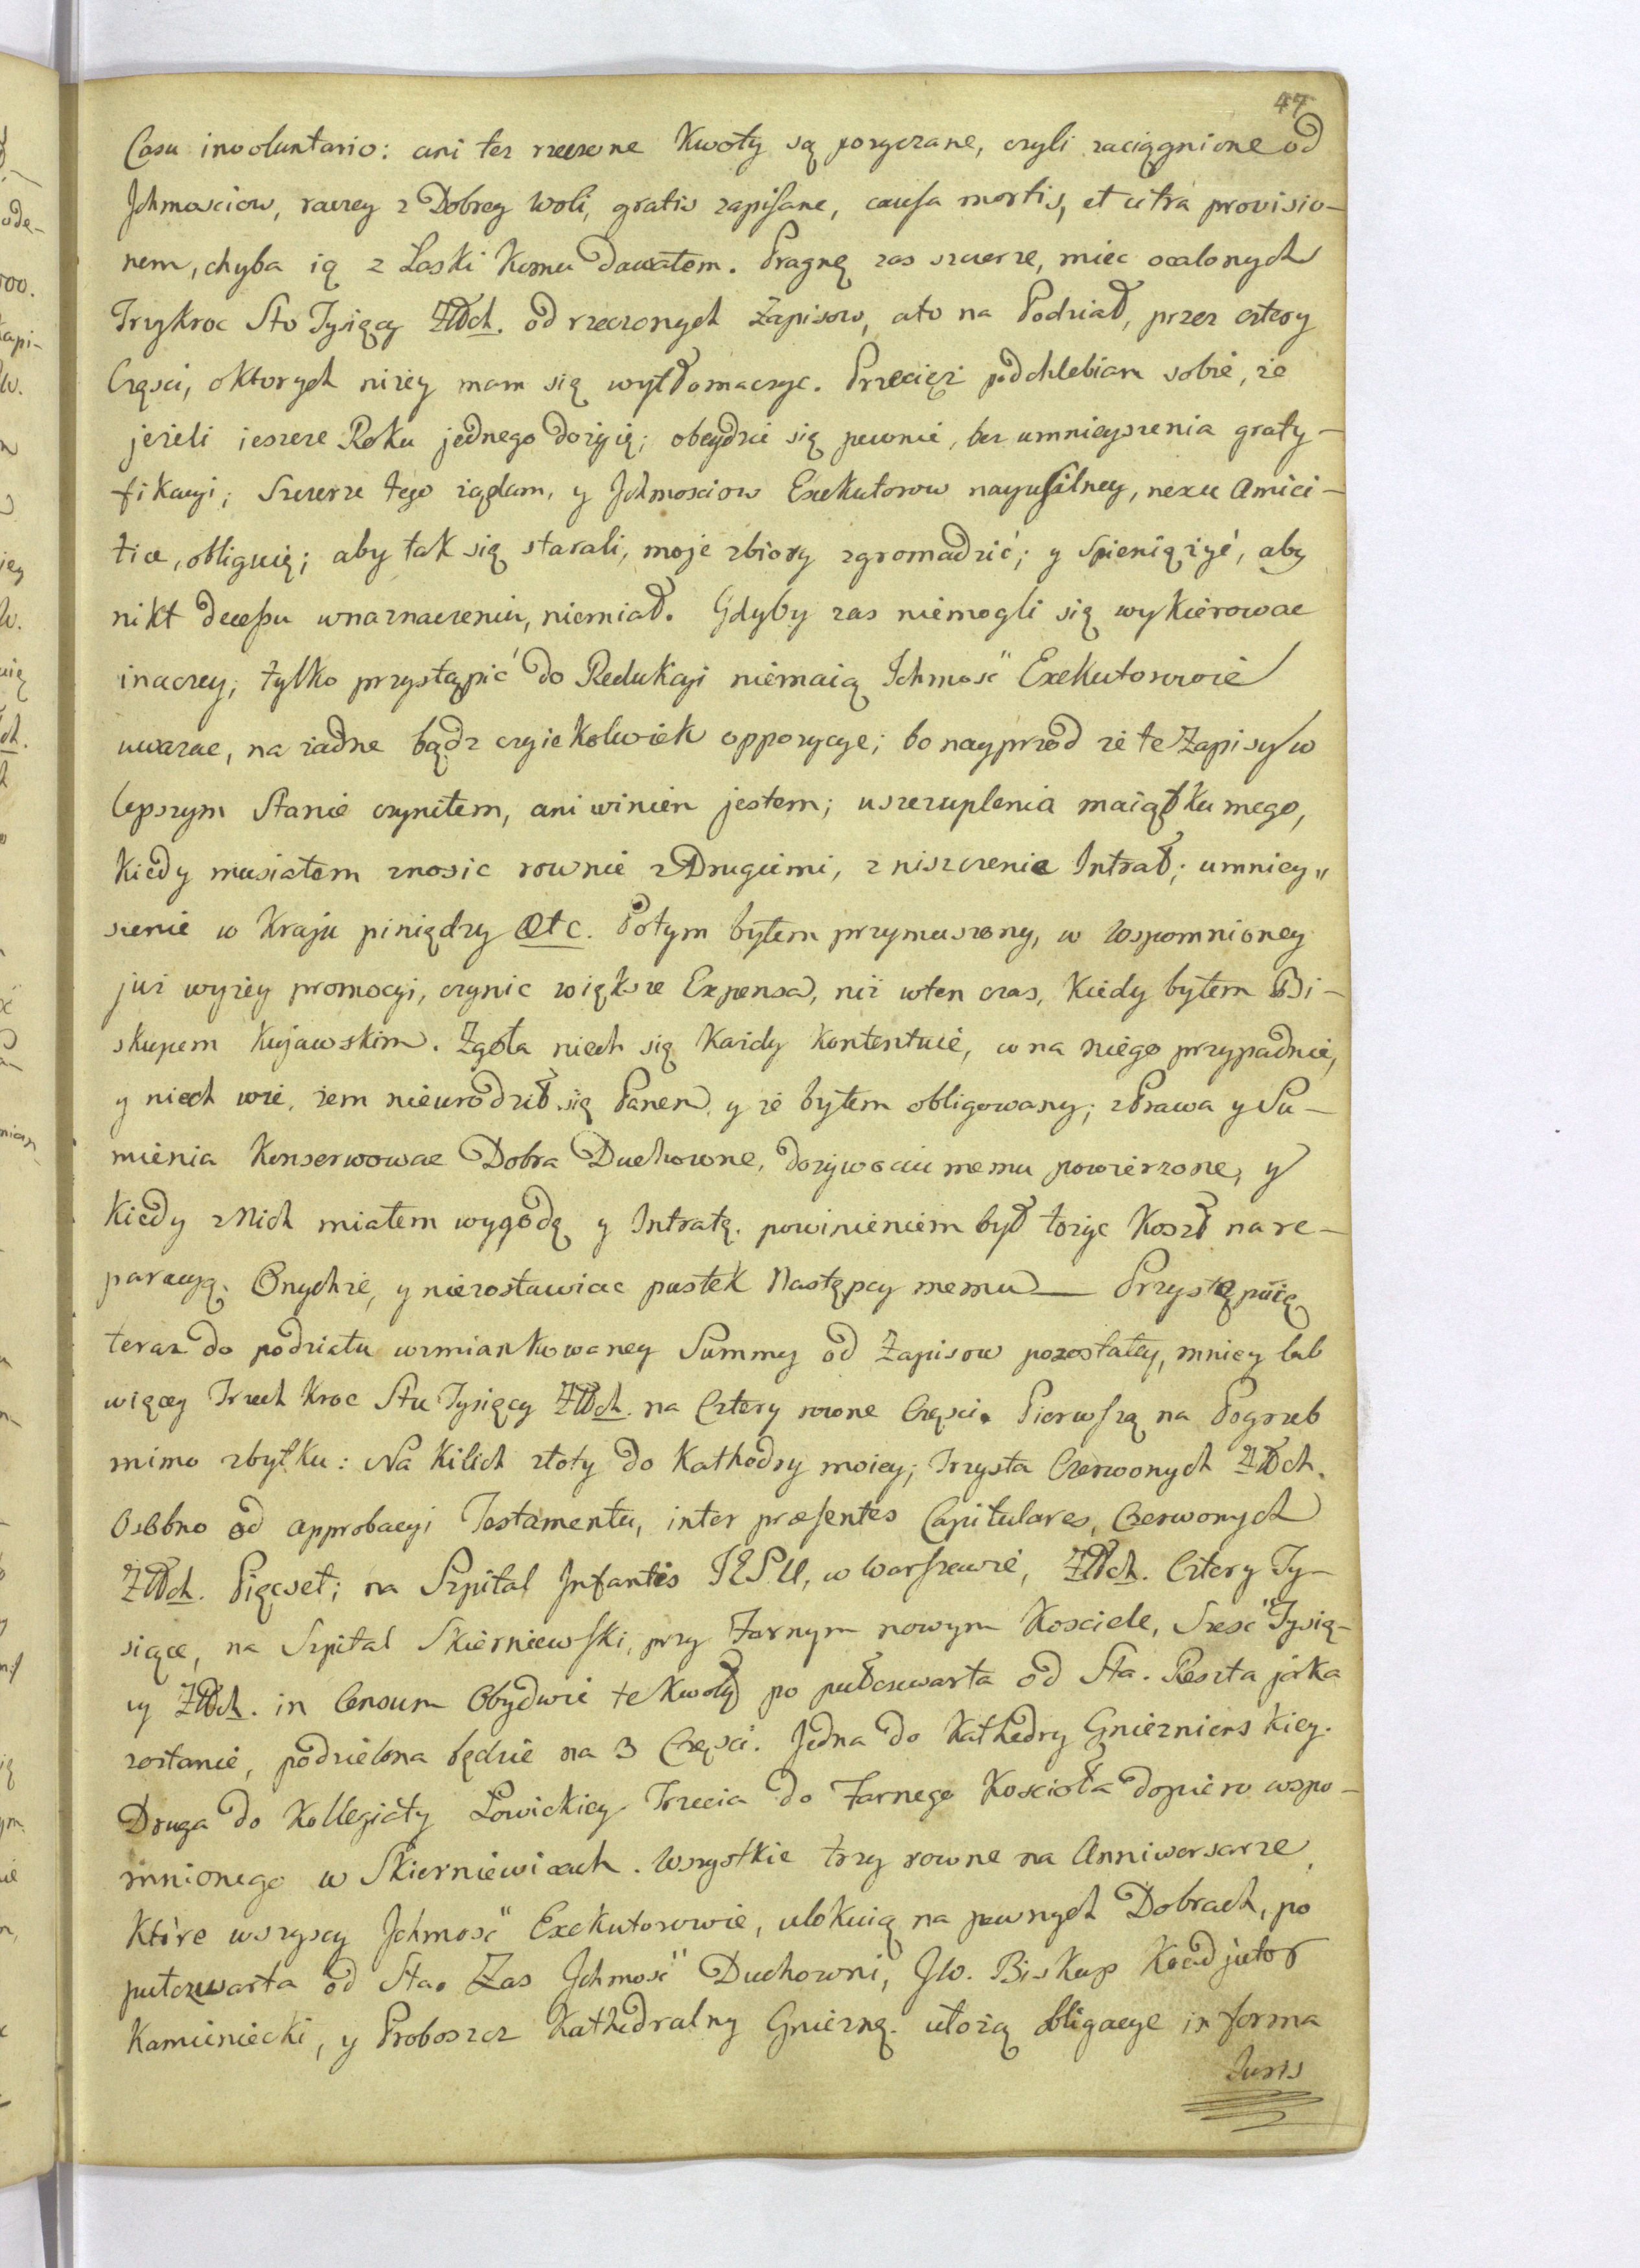 47
Casu involuntario: ani tez rzeczone Kwoty są pozyczane, czyli zaciągnione od
Jchmosciow, raczey z Dobrey Woli, gratis zapisane, causa mortis, et citra provisio-
nem, chyba ią z Laski Komu Dawałem. Pragnę zas szczerze, miec ocalonych
Trzykroc Sto Tysięcy Złłch. od rzeczonych Zapisow, ato na Podział, przez cztery
Częsci, oktorych niżey mam się wytłomaczyc. Przecięż podchlebiam sobie, że
jeżeli ieszcze Roku jednego dożyię; obeydzie się pewnie, bez umnieyszenia graty-
fikacyi; Szczerze tego ządam, y Jchmosciow Exekutorow nayusilney, nexu Amici-
tiæ, obliguię; aby tak się starali, moje zbiory zgromadzić; y Spieniężyć, aby
nikt decessu wnaznaczeniu, niemiał. Gdyby zas niemogli się wykierowac
inaczey, tylko przystąpić do Redukcyi niemaią Ichmosć Exekutorowie
uwazac, na żadne bądz czyiekolwiek oppozycye; bo nayprzod że te Zapisy w
lepszym Stanie czyniłem, ani winien jestem; uszczuplenia maiątku mego,
Kiedy musiałem znosic rownie z Drugiemi, zniszczenie Intrat; umniey„
szenie w Kraju piniędzy etc. Potym byłem przymuszony, w wspomnioney
już wyżey promocyi, czynic większe Expensa, niż wten czas, Kiedy byłem Bi-
skupem Kujawskim. Zgoła niech się Każdy Kontentuie, co na niego przypadnie,
y niech wie, zem nieurodził się Panem, y że byłem obligowany; z Prawa y Su-
mienia Konserwowac Dobra Duchowne, dożywociu memu powierzone, y
Kiedy z Nich miałem wygodę y Intratę. powinieniem był łożyc Koszt na re-
paracyą. Onychże, y niezostawiac pustek Następcy memu — Przystępuię
teraz do podziału wzmiankowaney Summy od Zapisow pozostałey, mniey lub
więcey Trzech Kroc Stu Tysięcy Złłch. na Cztery rowne Częsci. Pierwszą na Pogrzeb
mimo zbytku: Na Kilich złoty do Kathedry moiey; Trzysta Czerwonych Złłch.
Osobno od approbacyi Testamentu, inter præsentes Capitulares, Czerwonych
Złłch. Pięcset; na Szpital Infantis JESU, w Warszawie, Złłch. Cztery Ty-
siące, na Szpital Skierniewski, przy Farnym nowym Kosciele, Szesć Tysię-
cy Złłch. in Censum Obydwie te Kwoty po pułczwarta od Sta. Reszta jaka
zostanie, podzielona będzie na 3 Częsci. Jedna do Kathedry Gniezniens Kiey.
Druga do Kollegiaty Łowickiey Trzecia do Farnego Koscioła dopiero wspo-
mnionego w Skierniewicach. Wszystkie trzy rowne na Anniwersarze,
Które wszyscy Jchmosć Exekutorowie, ulokuią na pewnych Dobrach, po
pułczwarta od Sta. Zas Jchmosć Duchowni, JW. Biskup Koadjutor
Kamieniecki, y Proboszcz Kathedralny Gniezną. ułożą obligacye in forma
Juris